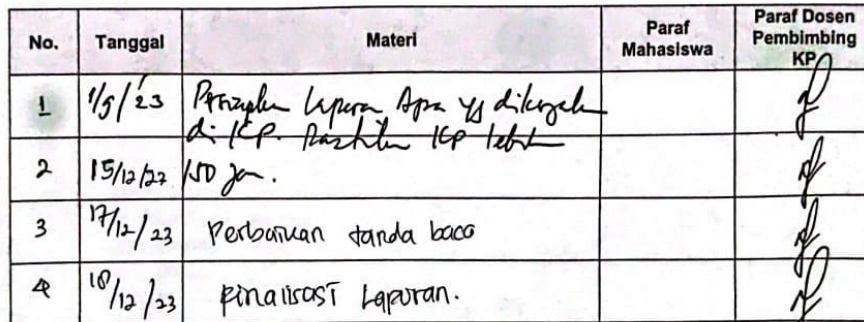 No. Tanggal Materi Paraf Mahasiswa Paraf Dosen Pembimbing KP
1 1/9/23 laporan Apa yg dikerjakan
di KP. Pastikan KP lebih
2 15/12/23 150 jam.
3 17/12/23 Perbaikan tanda baca
4 18/12/23 Finalisasi Laporan.